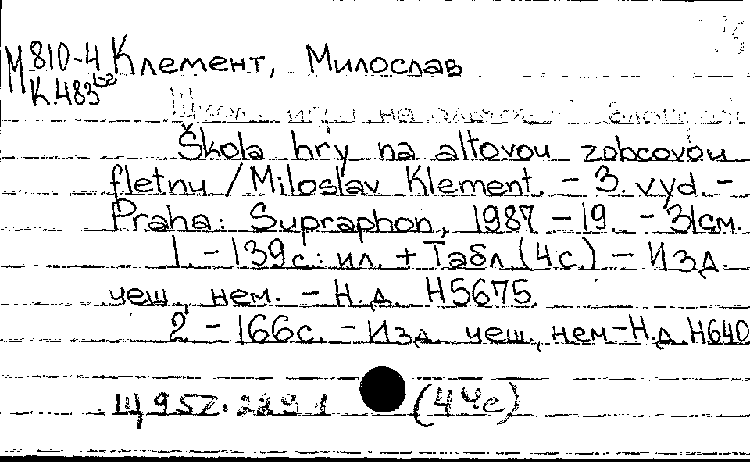 М810-4 Клемент, Милослав
К.483
на
Škola hry na altovou zobcovou
fletnu / Miloslav Klement. - 3. vyd. -
Praha: Supraphon, 1987 - 19. - 31см.
1. - 139с: ил. + Табл (4с.) - Изд.
чеш., нем. - Н.д. Н5675.
2 - 166с. - Изд. чеш., нем - Н.д. Н640
Щ957.229.1 (4Че)